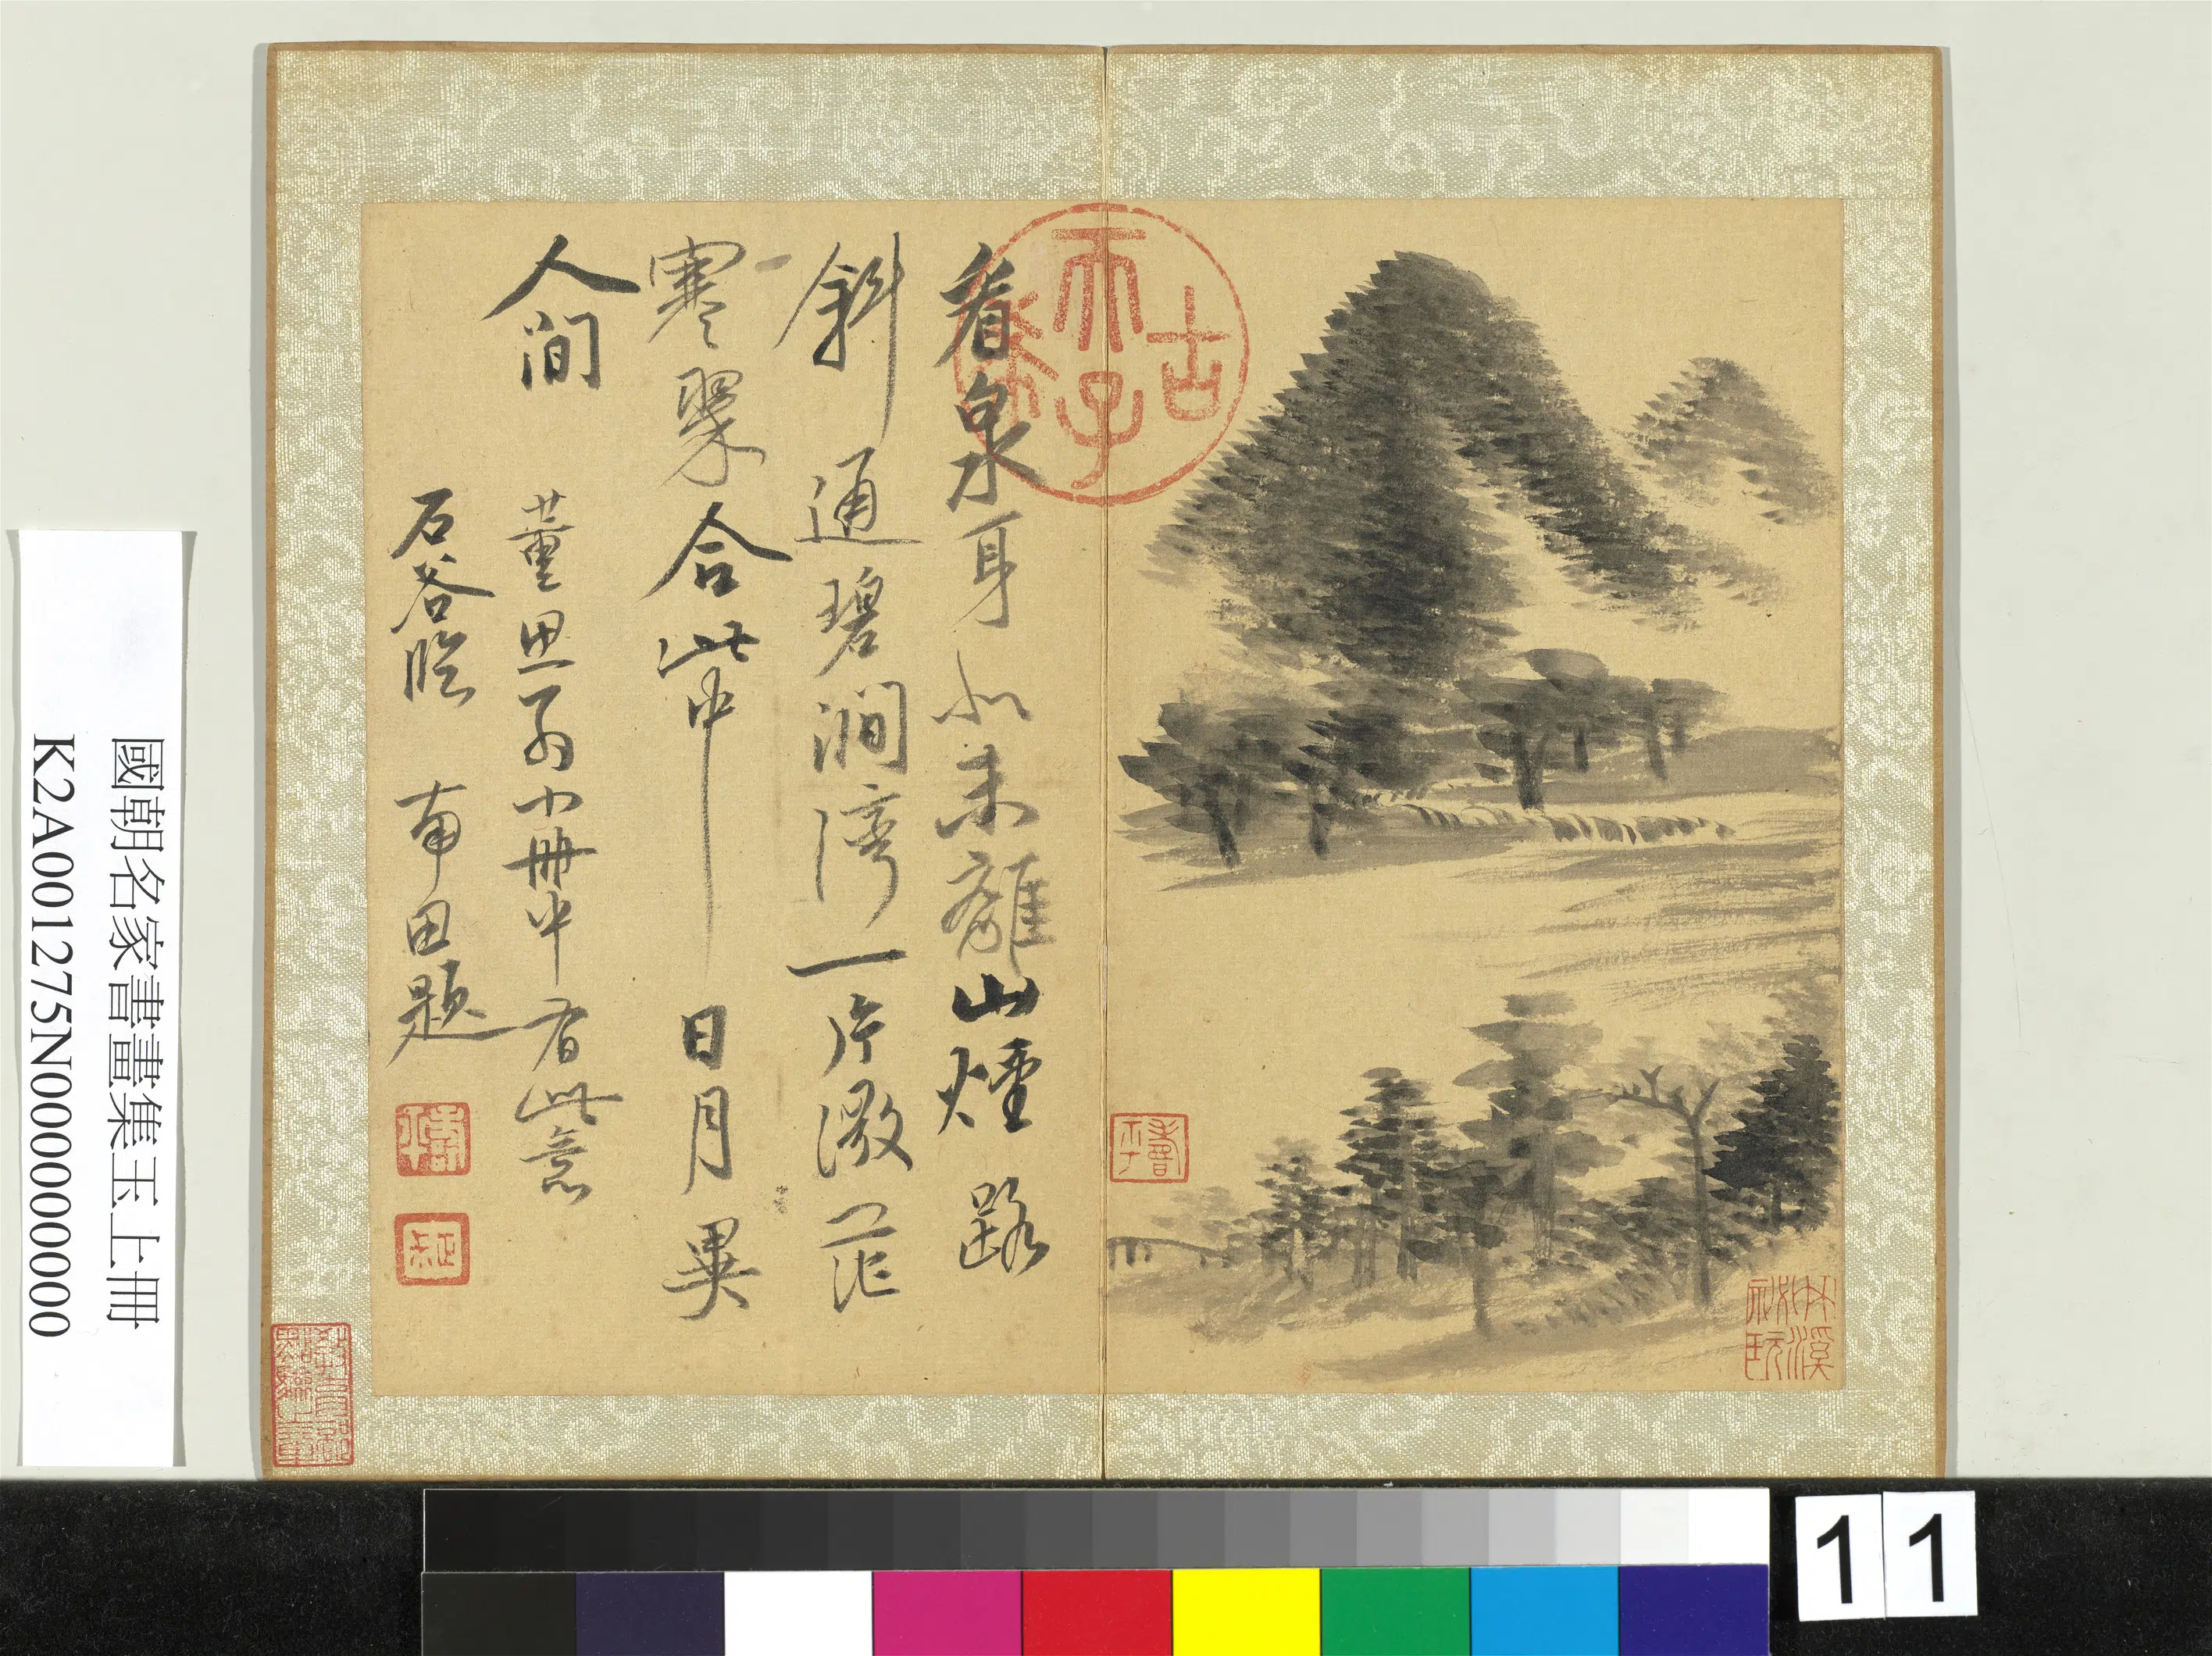 看泉身似未離山煙路
斜通碧澗灣一片微茫
寒翠合此中日月異
人間
董思翁小冊中有此意
石谷臨 南田題
古
天子
國朝名家書畫集玉上冊
K2A001275N000000000
11